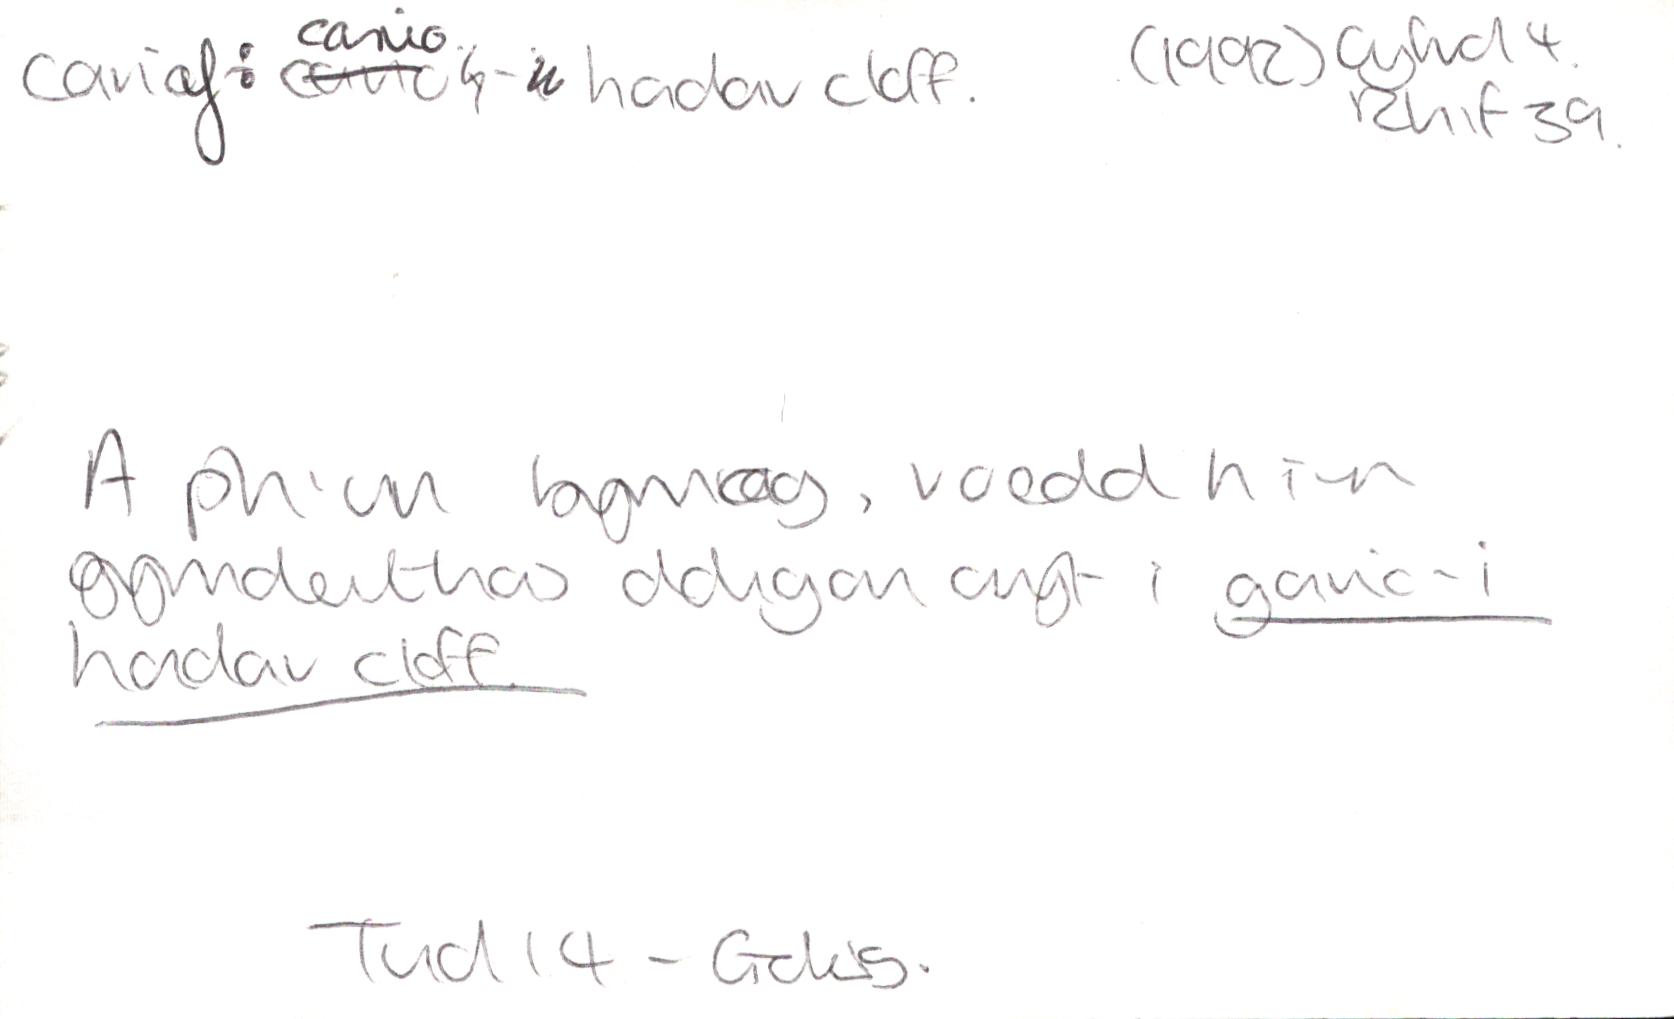 cariaf: cario
hadau cloff. (1992) Cyfrol 4.
Rhif 39.
A ph'un bynnag, roedd hi'n
gymdeithas ddigon cryf i gario-i
hadau cloff.
Tud 14 -